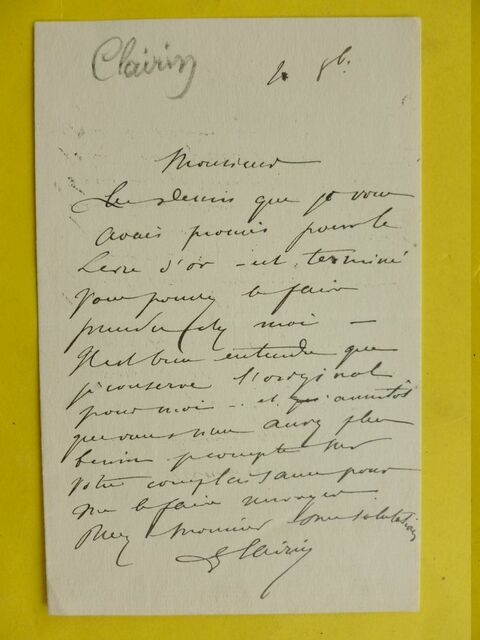 Clairin
Monsieur
Le dessin que je vous
avais promis pour le
Livre d'or - est terminé
Vous pouvez le faire
prendre chez moi -
Il est bien entendu que
je conserve l'original
pour moi - et qu'aussitôt
que vous n'en aurez plus
besoin je compte sur
votre complaisance pour
me le faire renvoyer
Recevez Monsieur mes salutations
G Clairin